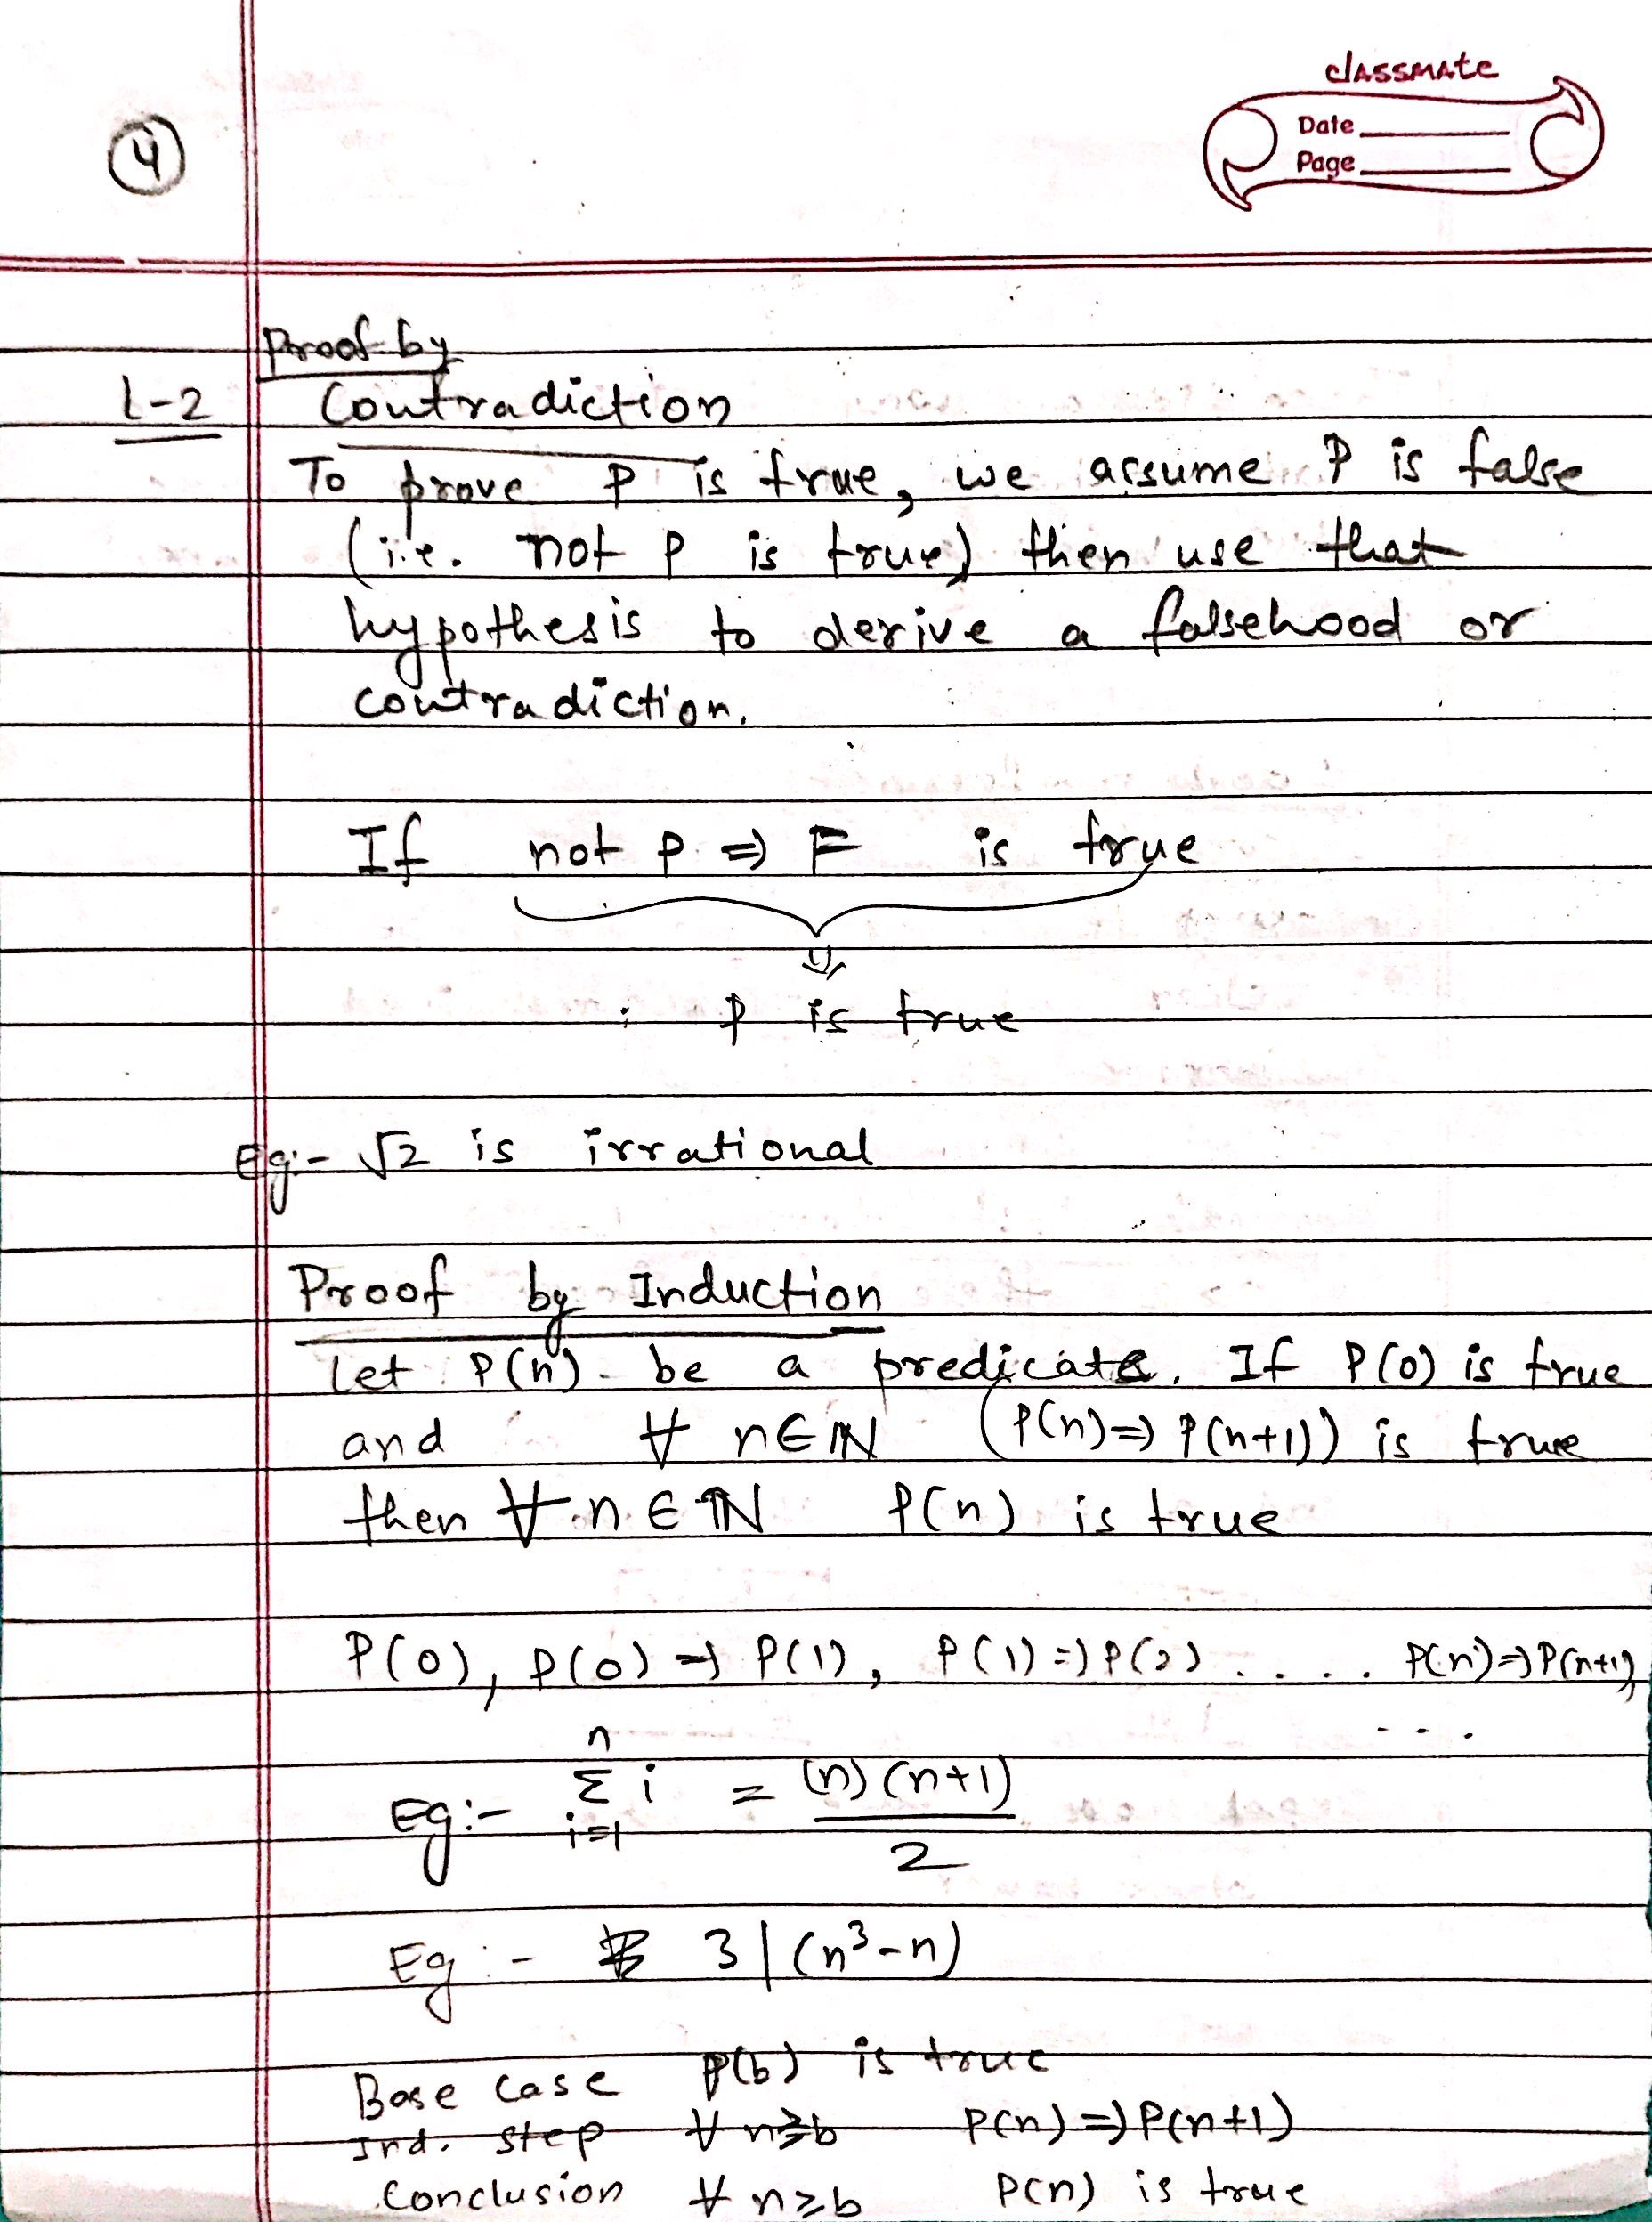 classmate
Date
Page
4
Proof by
L-2 Contradiction
To prove P is true, we assume P is false
(i.e. not P is true) then use that
hypothesis to derive a falsehood or
contradiction.
If not P ⇒ F is true
⇓
P is true
Eg:- √2 is irrational
Proof by Induction
Let P(n) be a predicate. If P(0) is true
and ∀ n∈ℕ (P(n)⇒ P(n+1)) is true
then ∀ n ∈ ℕ P(n) is true
P(0), P(0) ⇒ P(1), P(1) ⇒ P(2) ..... P(n)⇒P(n+1),
...
n
Eg:- Σ i = (n)(n+1)
i=1 2
Eg:- 3 | (n³-n)
Base case P(b) is true
Ind. step ∀ n≥b P(n) ⇒ P(n+1)
Conclusion ∀ n≥b P(n) is true